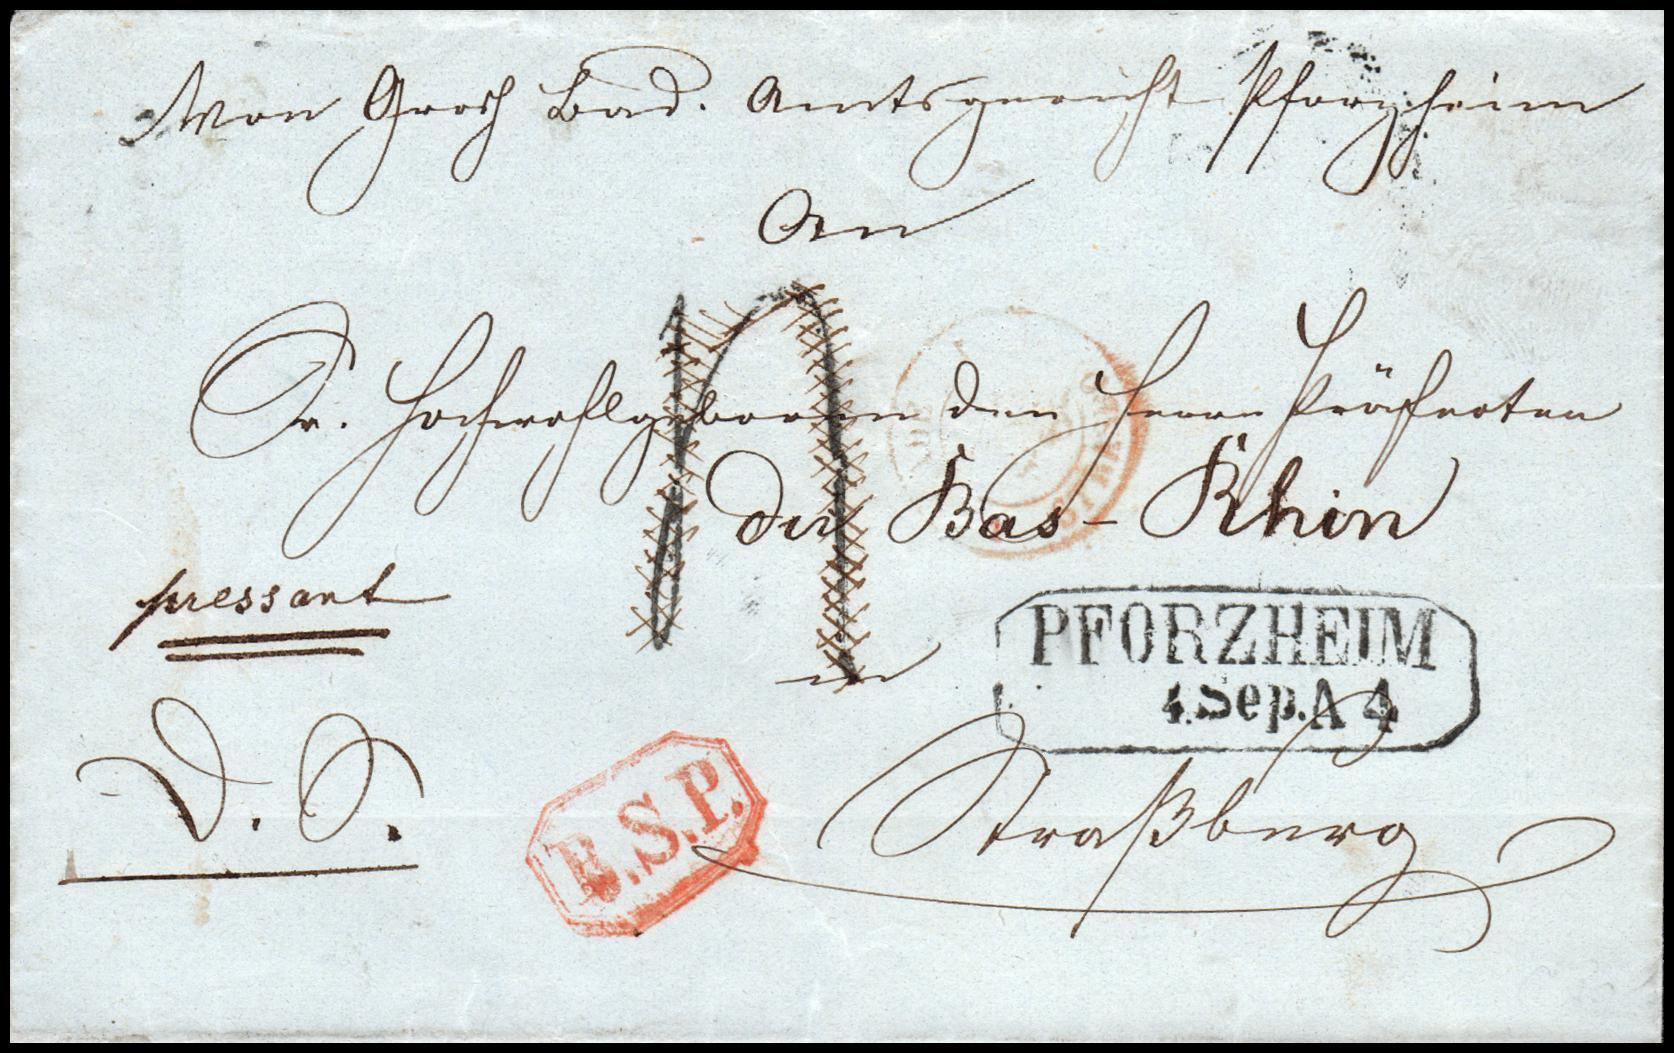 Von Groſh Bad. Amtsgericht Pforzheim
An
Sr. Hochwohlgeboren den Herrn Präfecten
du Bas-Rhin
pressant
in
PFORZHEIM
4. Sep. A 4
D. S.
B.S.P.
Straßburg